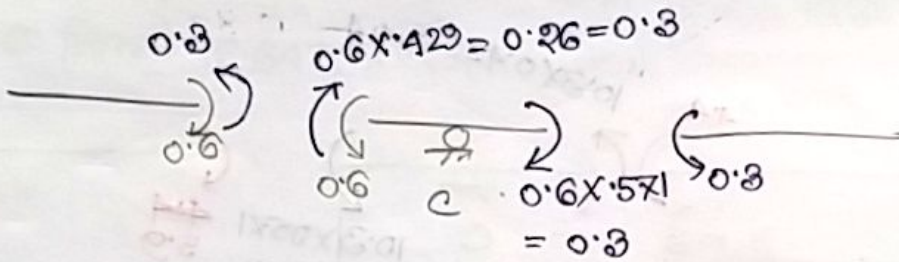 0.3
0.6X.429 = 0.26 = 0.3
0.6
0.6
C
0.6X.571
= 0.3
0.3